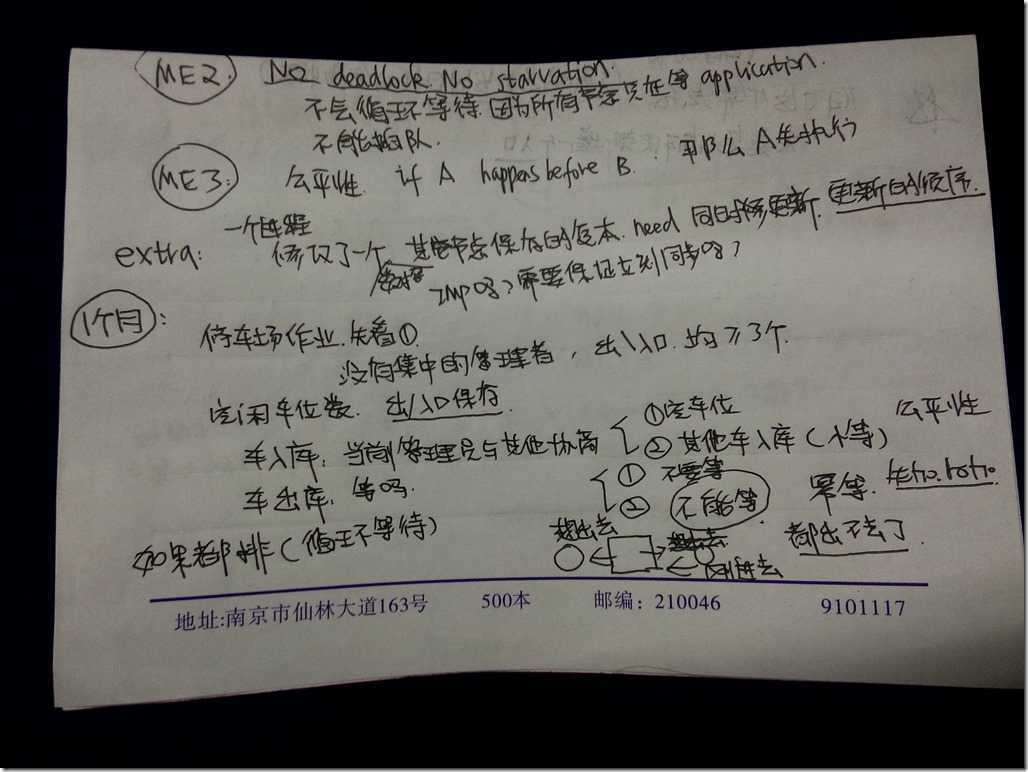 ME2. No deadlock. No starvation.
不会循环等待,因为所有节点只在等 application.
不能插队.
ME3: 公平性. if A happens before B. 那么 A先执行
一个进程
extra: 修改了一个 其他节点保存的复本. need 同时修更新. 更新的顺序.
数据 Imp吗? 需要保证立刻同步吗?
1个月:
停车场作业. 先看①.
没有集中的管理者, 出入口. 均≥3个.
空闲车位数. 出/入口保存.
①空车位 公平性
车入库: 当前管理员与其他协商 ②其他车入库(少等)
①不要等
车出库: 等吗. ②不能等 幂等.
如果都排(循环等待) 想出去 都出不去了.
地址:南京市仙林大道163号 500本 邮编: 210046 9101117